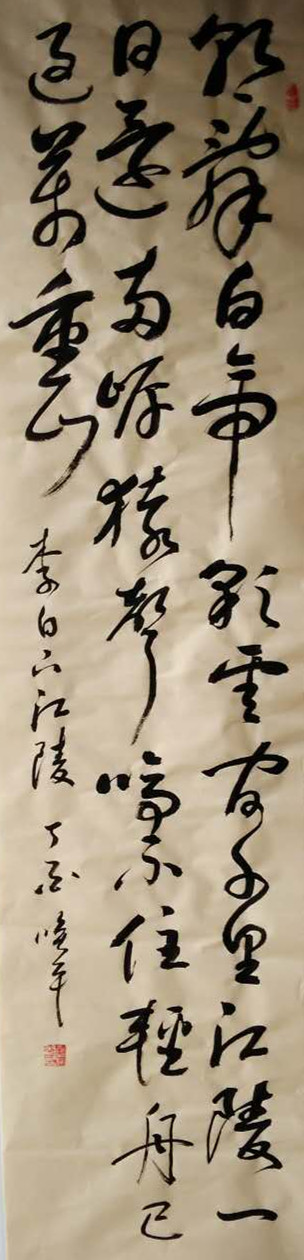 朝辭白帝彩雲間千里江陵一
日還兩岸猿聲啼不住輕舟已
過萬重山
李白下江陵 丁酉 曉平